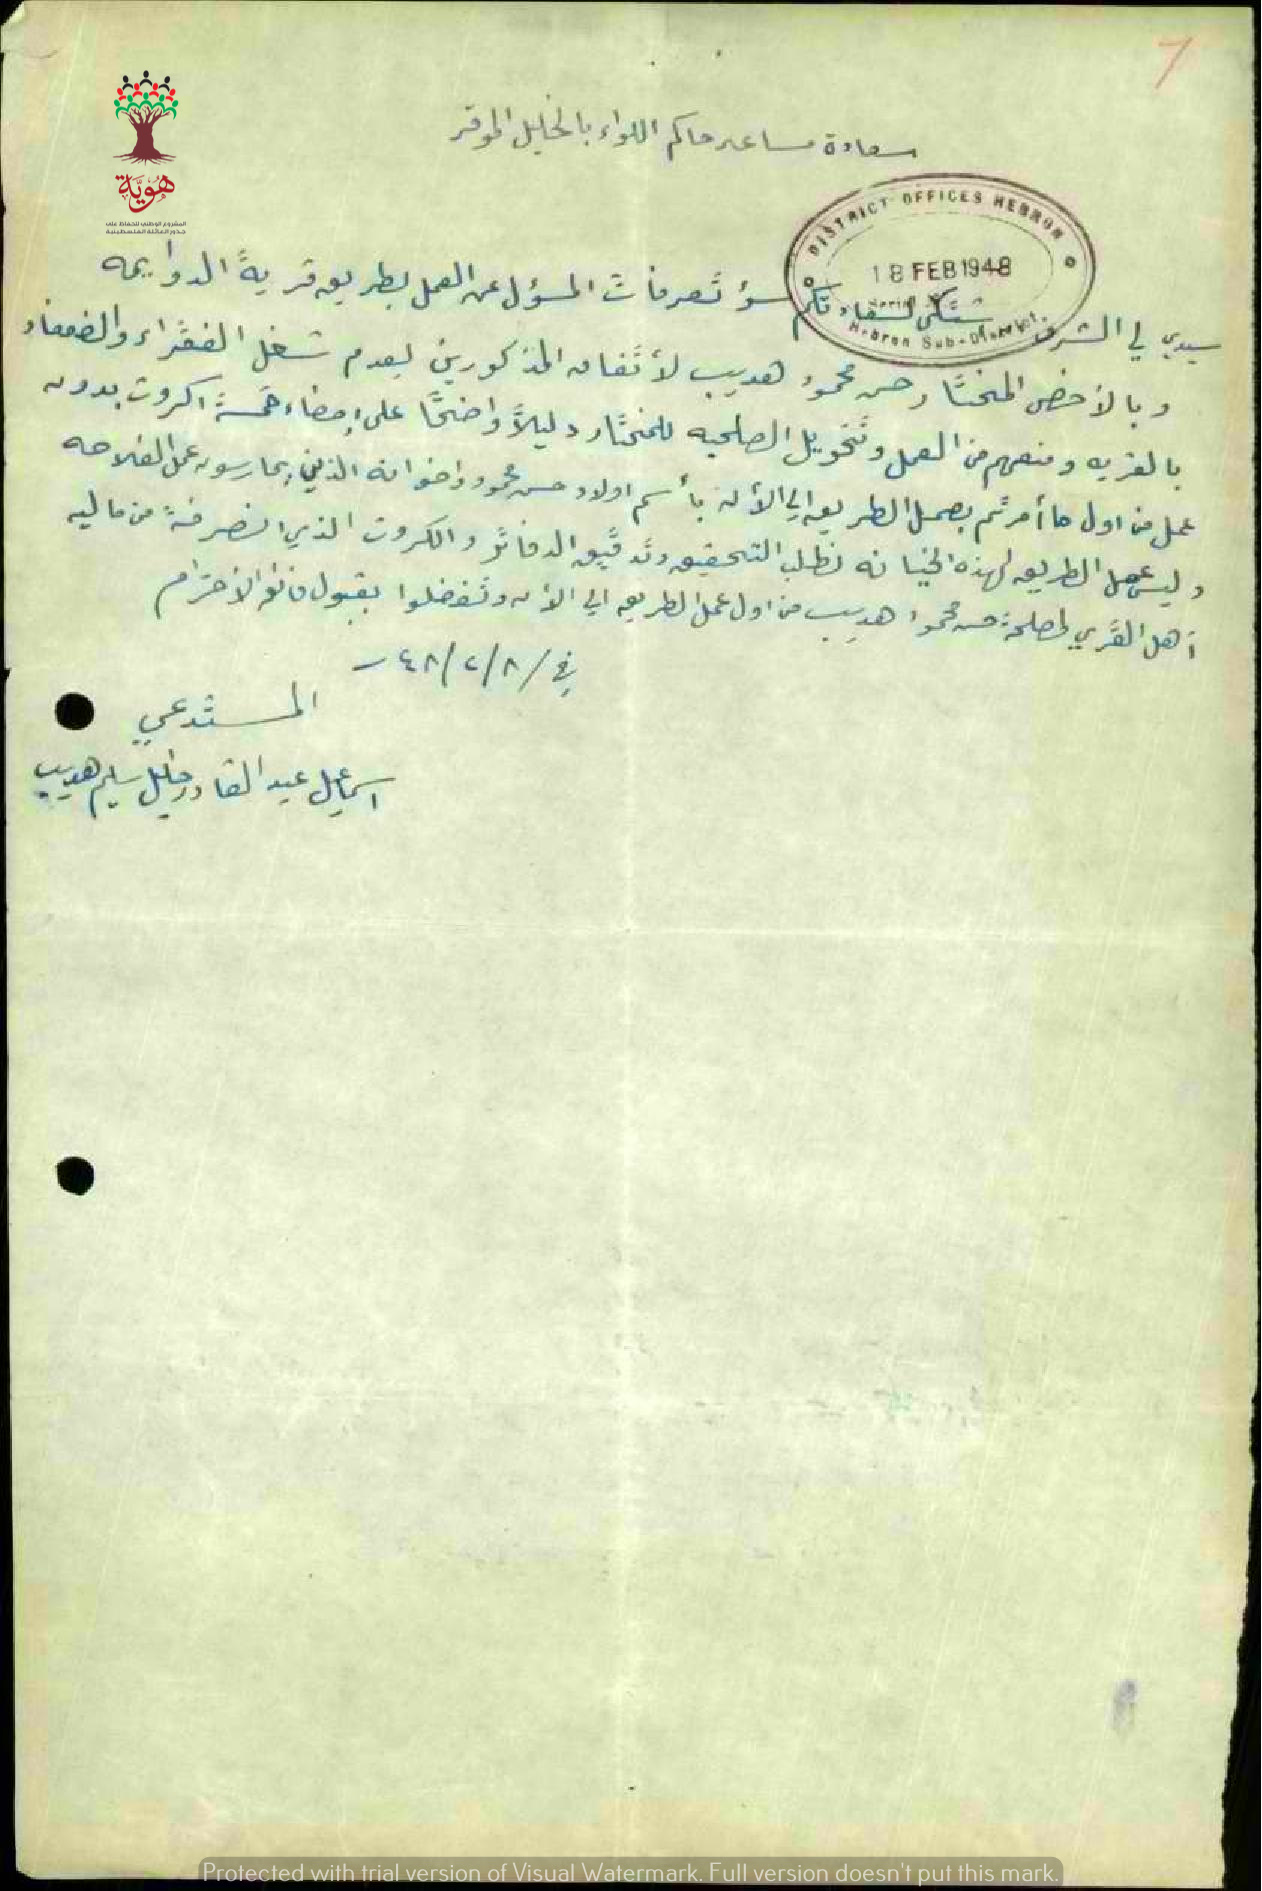 7
سعادة مساعد حاكم اللواء بالخليل الموقر
هوية
المشروع الوطني للحفاظ على
جذور العائلة الفلسطينية
DISTRICT OFFICES HEBRON
18 FEB 1948
Hebron Sub-District
سيدي لي الشرف نشتكي لسعادتكم سؤ تصرفات المسؤل عن العمل بطريق قرية الدوايمه
وبالأخص المختار حسن محمود هديب لأتفاق المذكورين لعدم شغل الفقراء والضعفاء
بالقريه ومنعهم من العمل وتخويل الصلحيه للمختار دليلاً واضحًا على إمضاء خمسة اكروت بدون
عمل من اول ما أمرتم بعمل الطريق الي الأن بأسم اولاد حسن محمود واخوانه الذين يمارسون عمل الفلاحه
وليس عمل الطريق لهذه الخيانه نطلب التحقيق وتدقيق الدفاتر والكروت الذي انصرفة من ماليه
أهل القري لمصلحة حسن محمود هديب من اول عمل الطريق الي الأن وتفضلوا بقبول فائق الأحترام
في ٤٨/٢/٨
المستدعي
اسماعيل عبد القادر خليل سليم هديب
Protected with trial version of Visual Watermark. Full version doesn't put this mark.